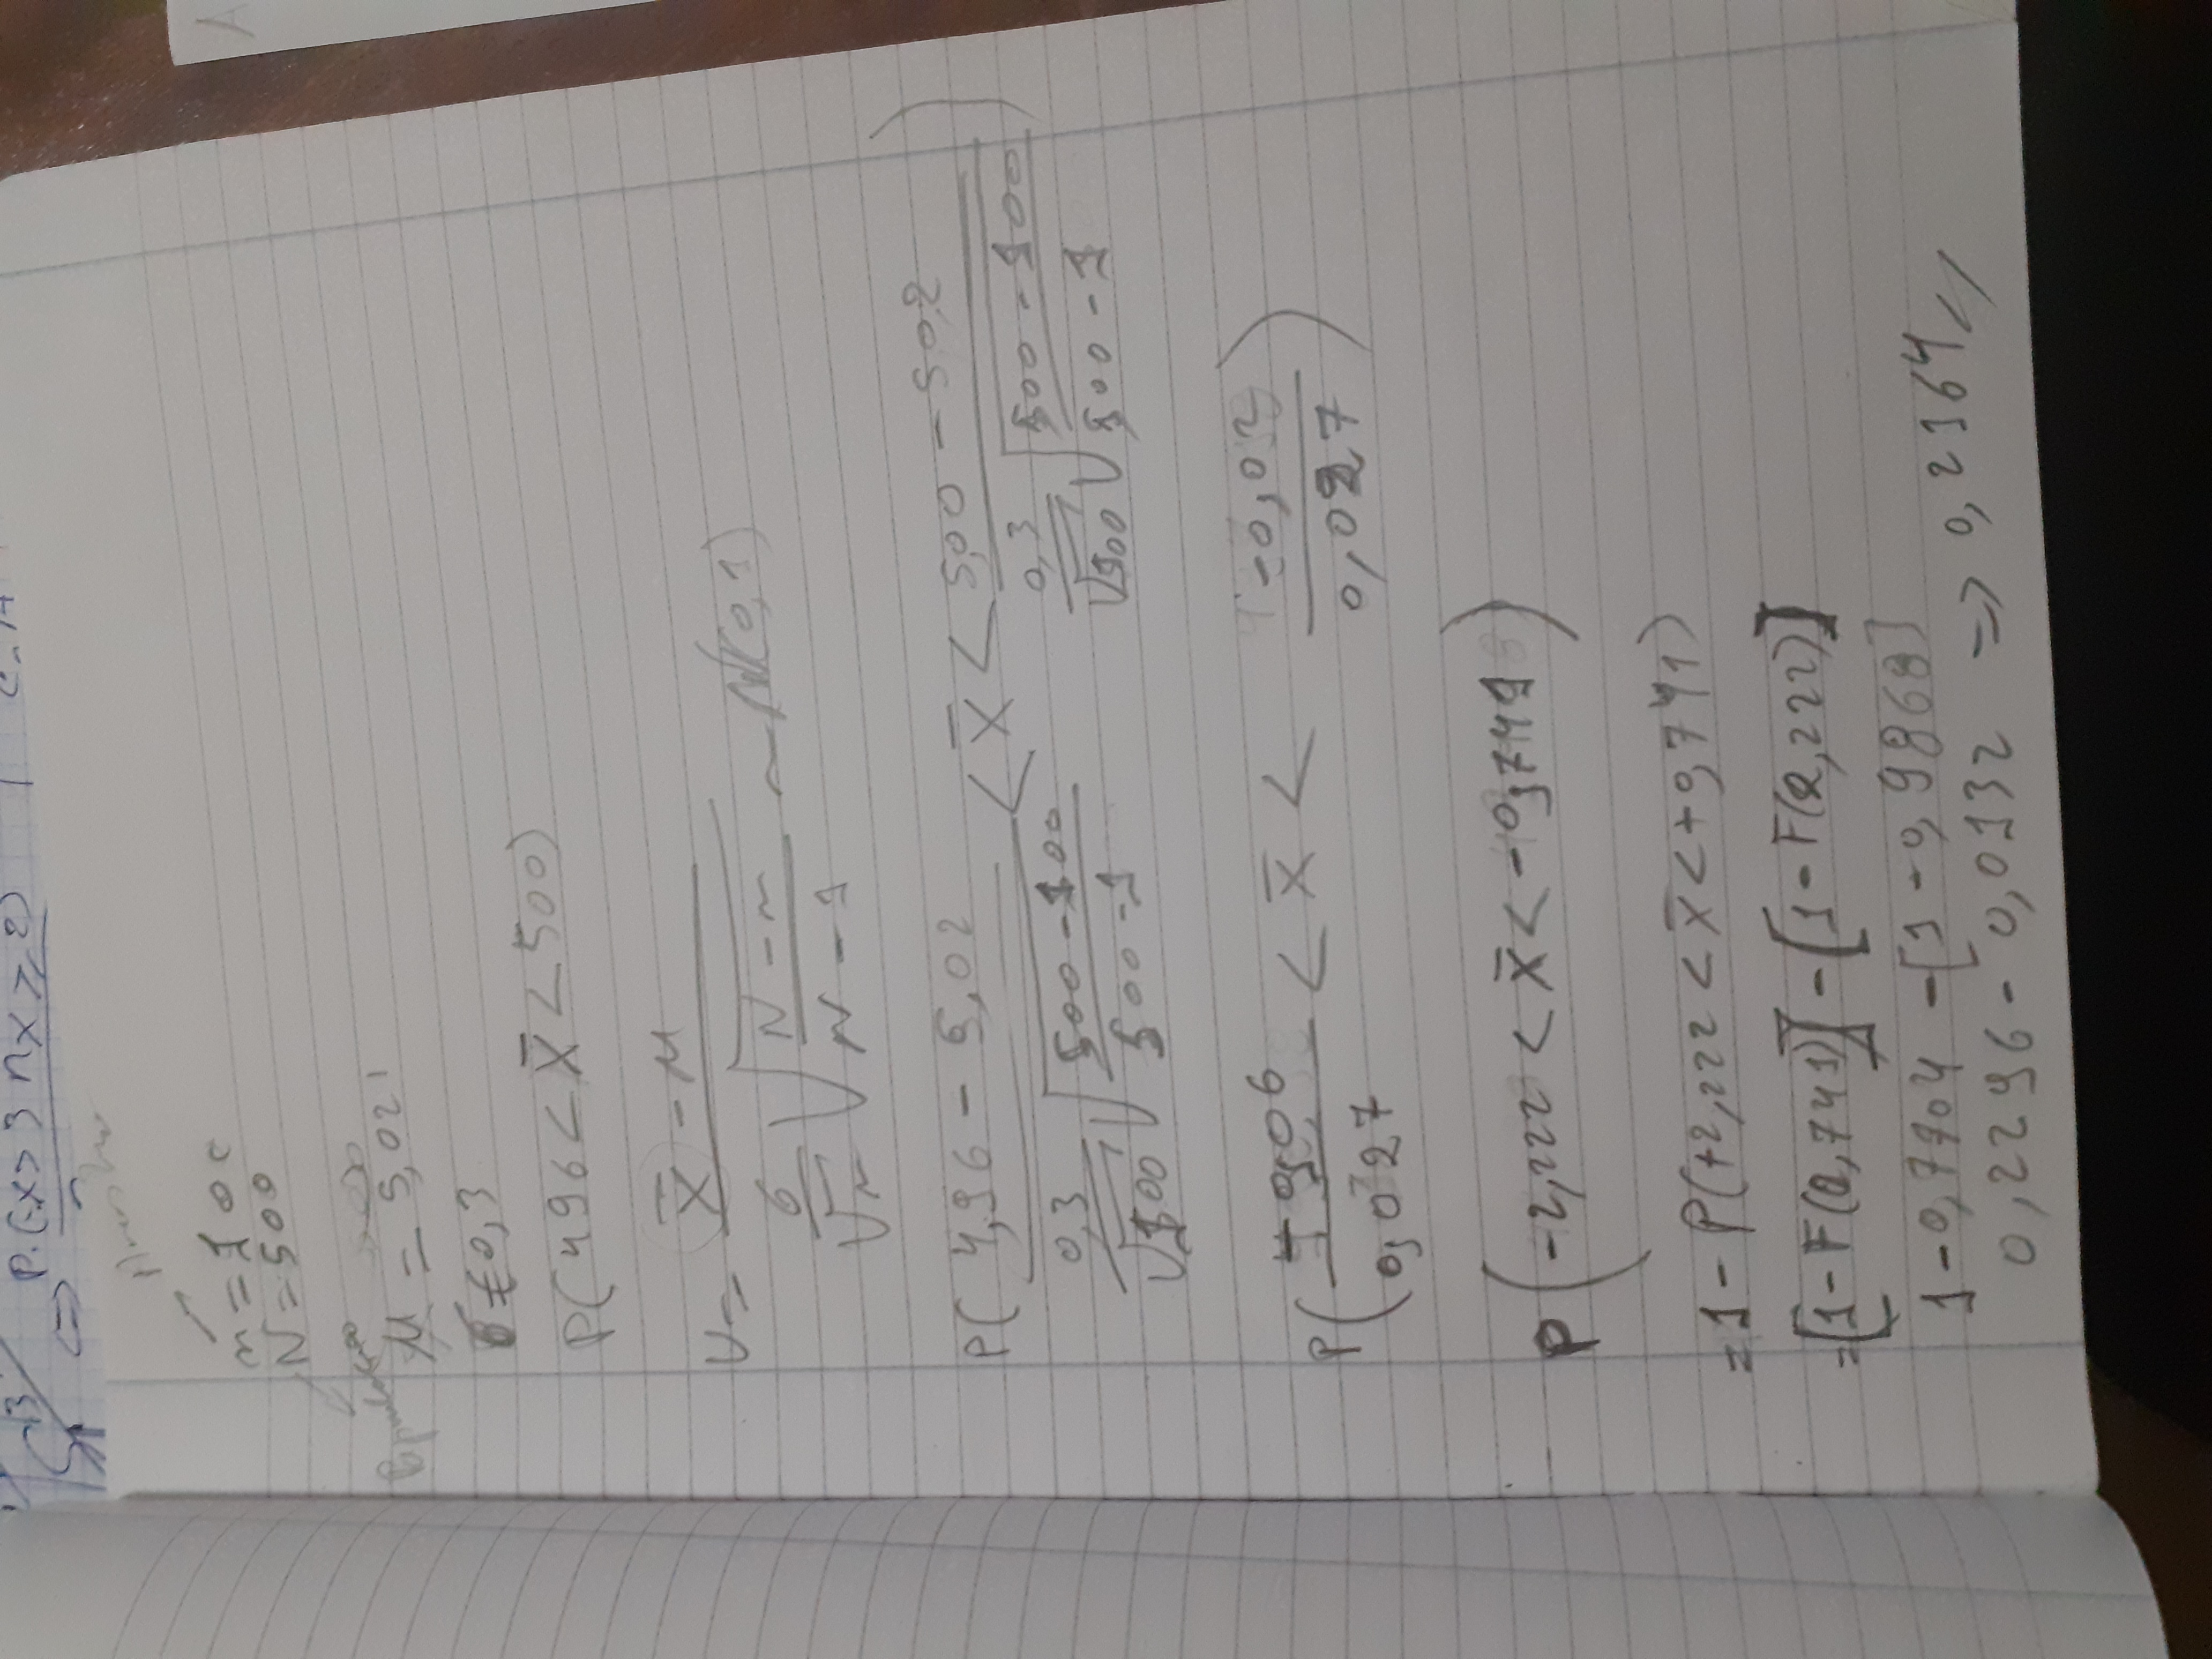 ⇔ P.(x>3 ∩ x ≥ 2)
Amostra
n = 100
N = 500
População
μ = 5,02
σ = 0,3
P(496 < X̄ < 500)
U = (X̄ - μ) / ((σ/√n) √((N-n)/(N-1))) ~ N(0,1)
P( (4,96 - 5,02) / ((0,3/√100) √((500-100)/(500-1))) < X̄ < (5,00 - 5,02) / ((0,3/√100) √((500-100)/(500-1))) )
P( -0,06/0,027 < X̄ < -0,02/0,027 )
P( -2,222 < X̄ < -0,741 )
= 1 - P(+2,222 < X̄ < +0,741)
= [1 - F(0,741)] - [1 - F(2,222)]
1 - 0,7704 - [1 - 0,9868]
0,2296 - 0,0132 ⇒ 0,2164 //